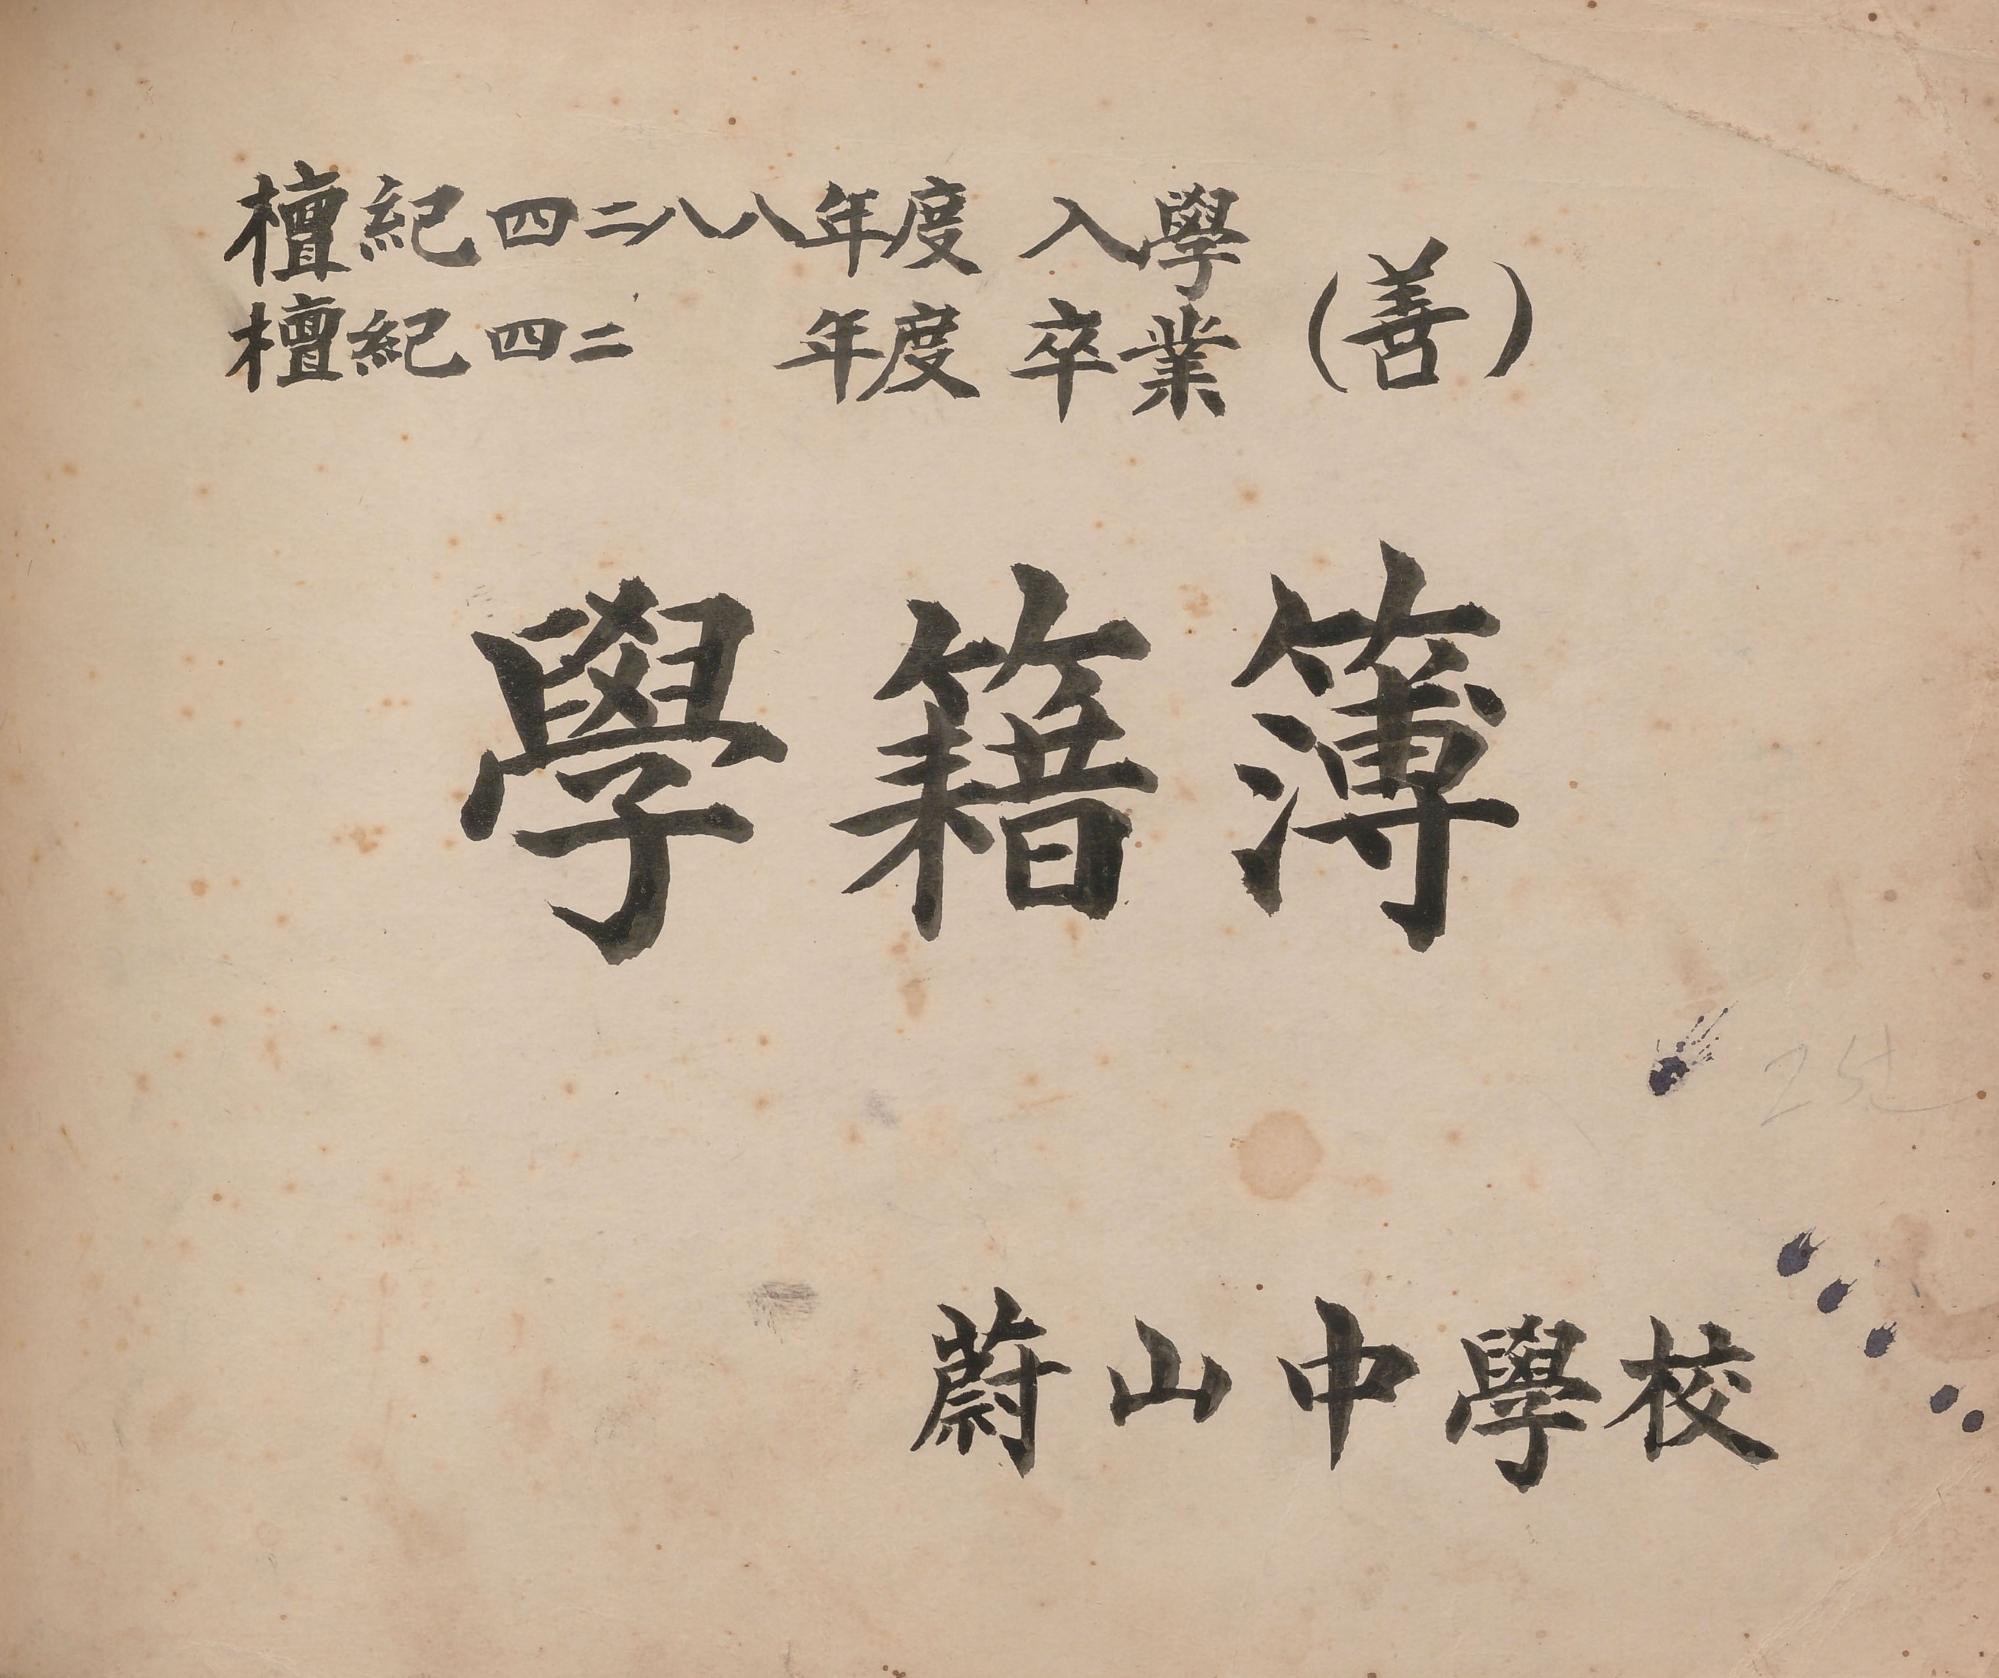 檀紀四二八八年度 入學
檀紀四二 年度 卒業
(善)
學籍簿
蔚山中學校